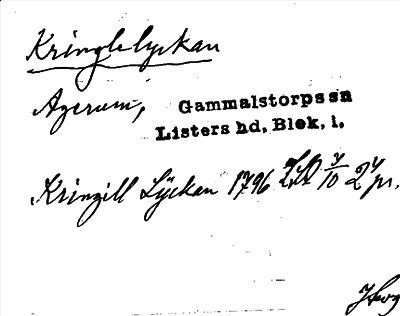 Kringlelyckan
Agerum, Gammalstorps sn
Listers hd. Blek. l.
Kringill Lyckan 1796 LR 3/10 2 pr.